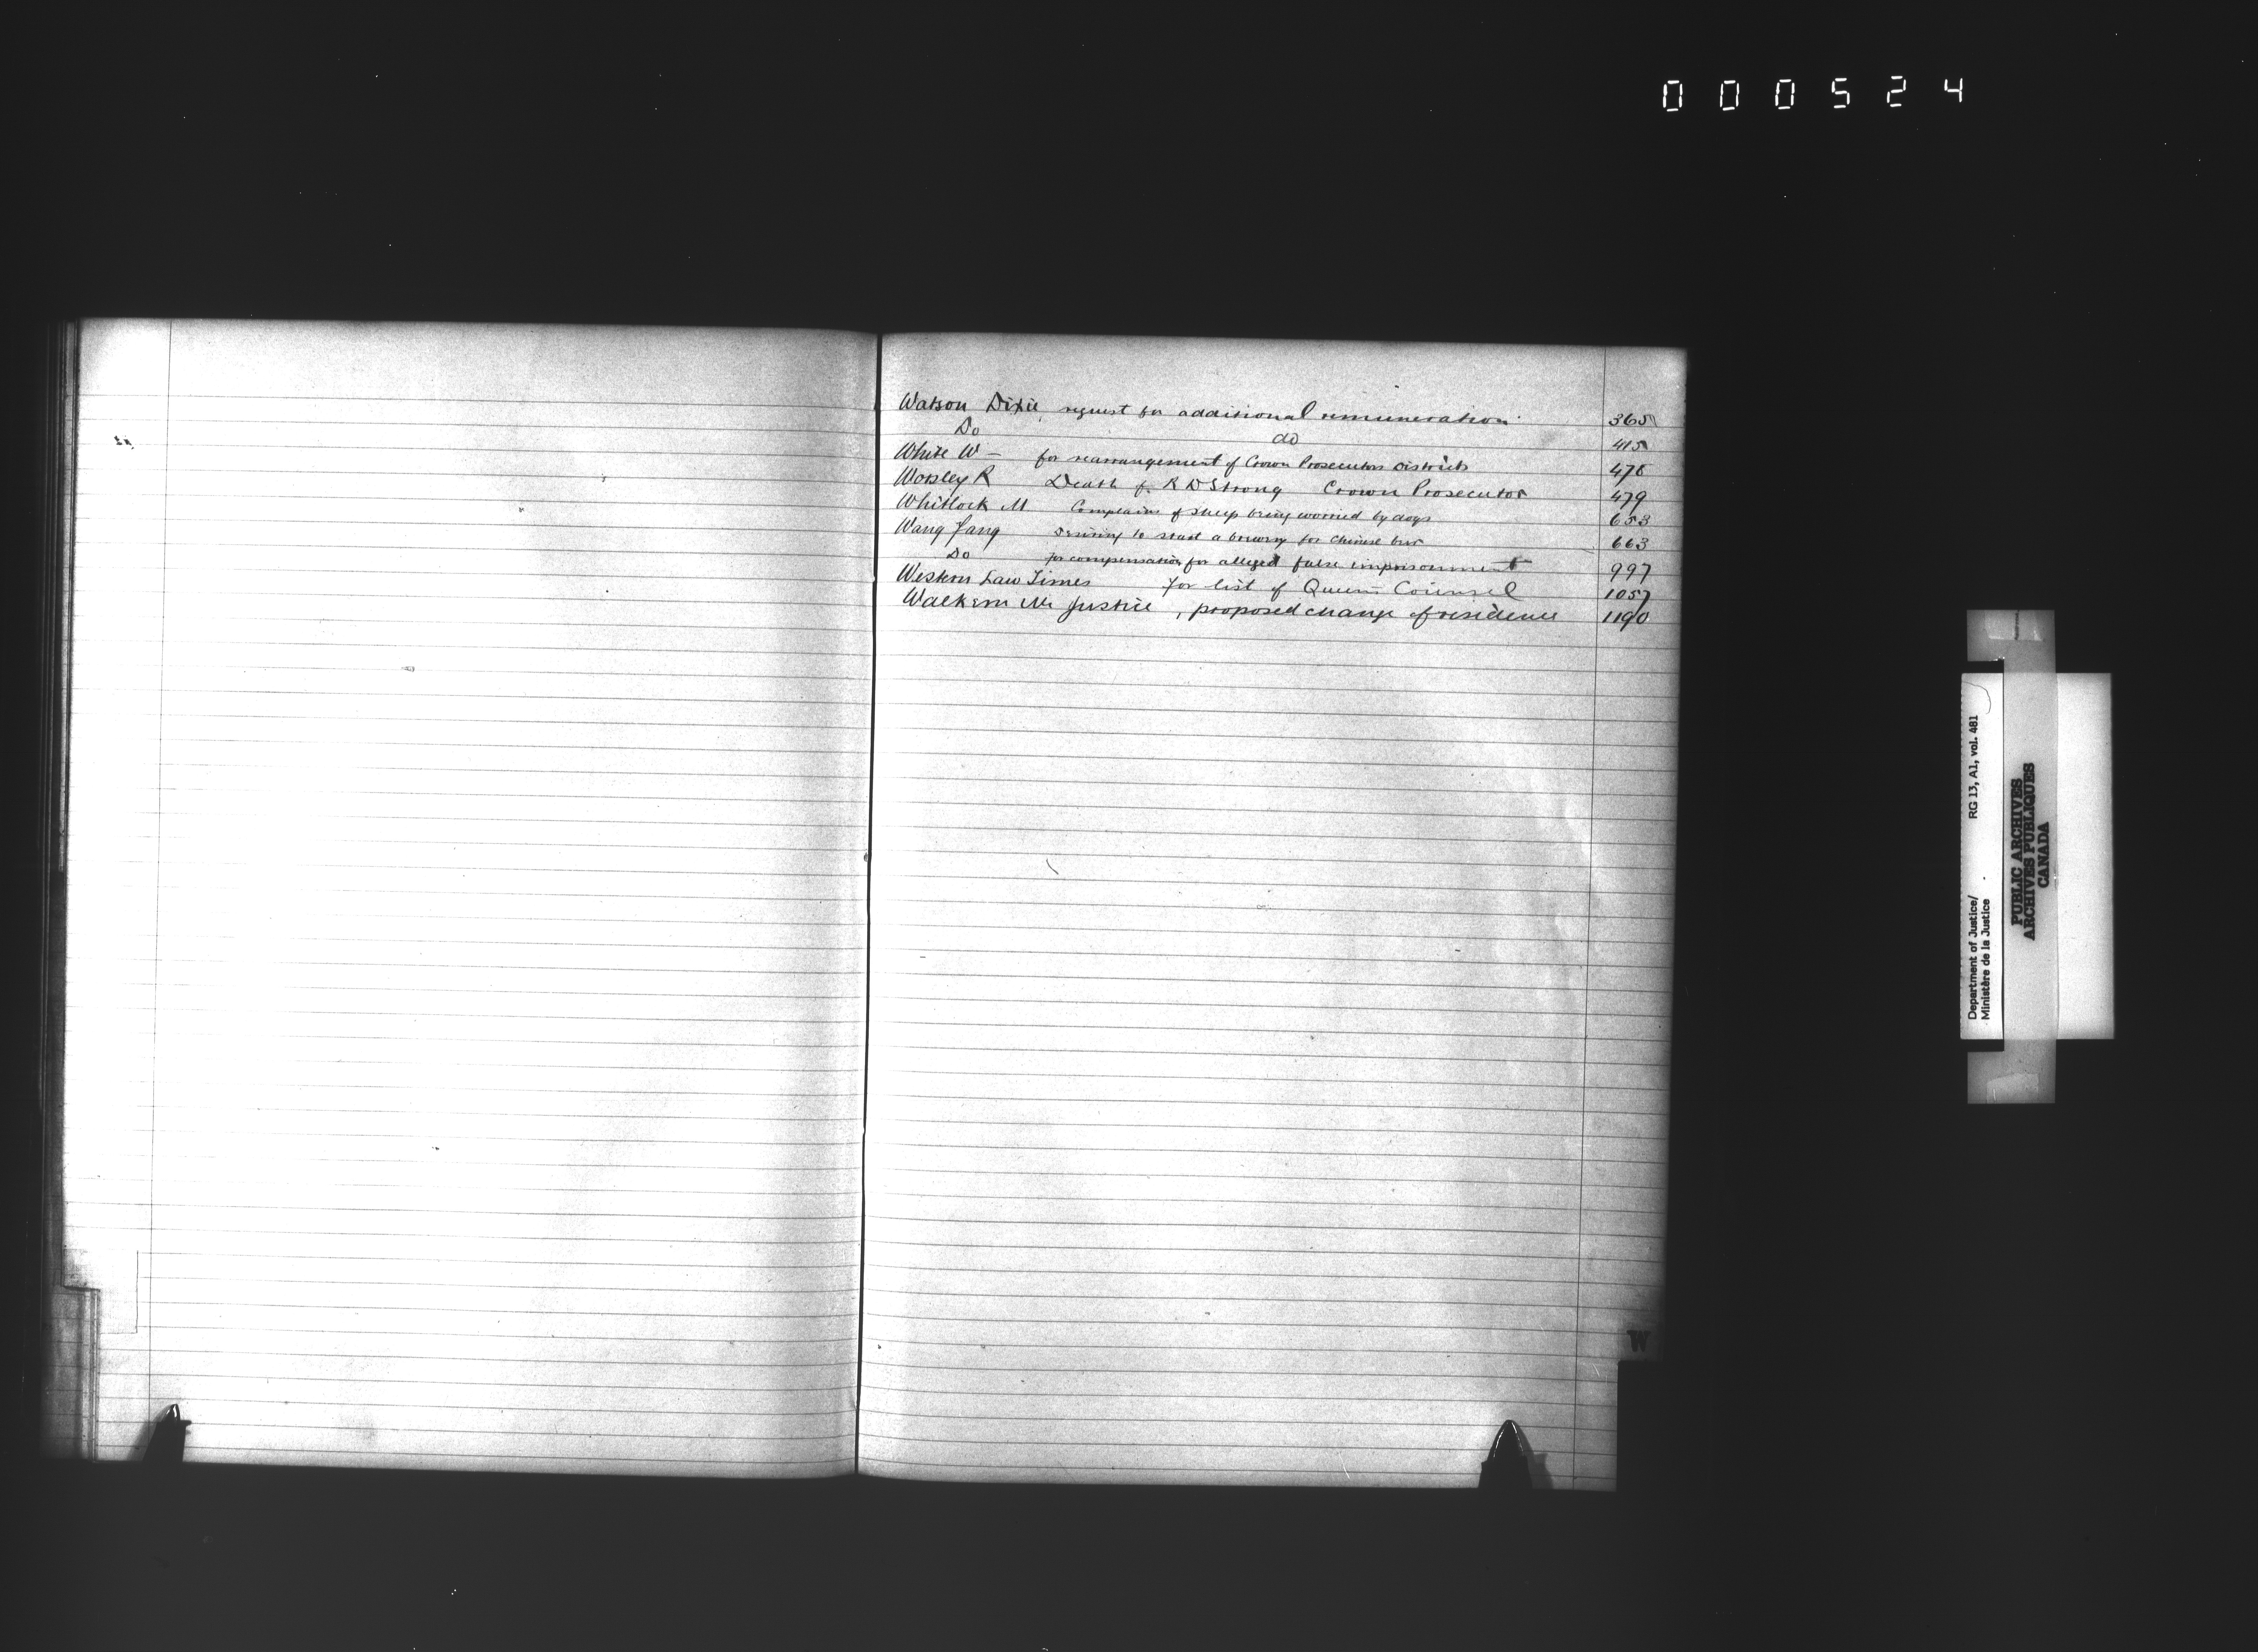 000524
Watson Dixie, request for additional remuneration 365
Do do 415
White W - for rearrangement of Crown Prosecutors Districts 478
Worsley R Death of R D Strong Crown Prosecutor 479
Whitlock M Complains of sheep being worried by dogs 653
Wang Fang Desiring to start a brewery for Chinese beer 663
Do for compensation for alleged false imprisonment 997
Western Law Times for list of Queens Counsel 1057
Walkem Mr Justice, proposed change of residence 1190
W
Department of Justice/ RG 13, A1, vol. 481
Ministère de la Justice
PUBLIC ARCHIVES
ARCHIVES PUBLIQUES
CANADA